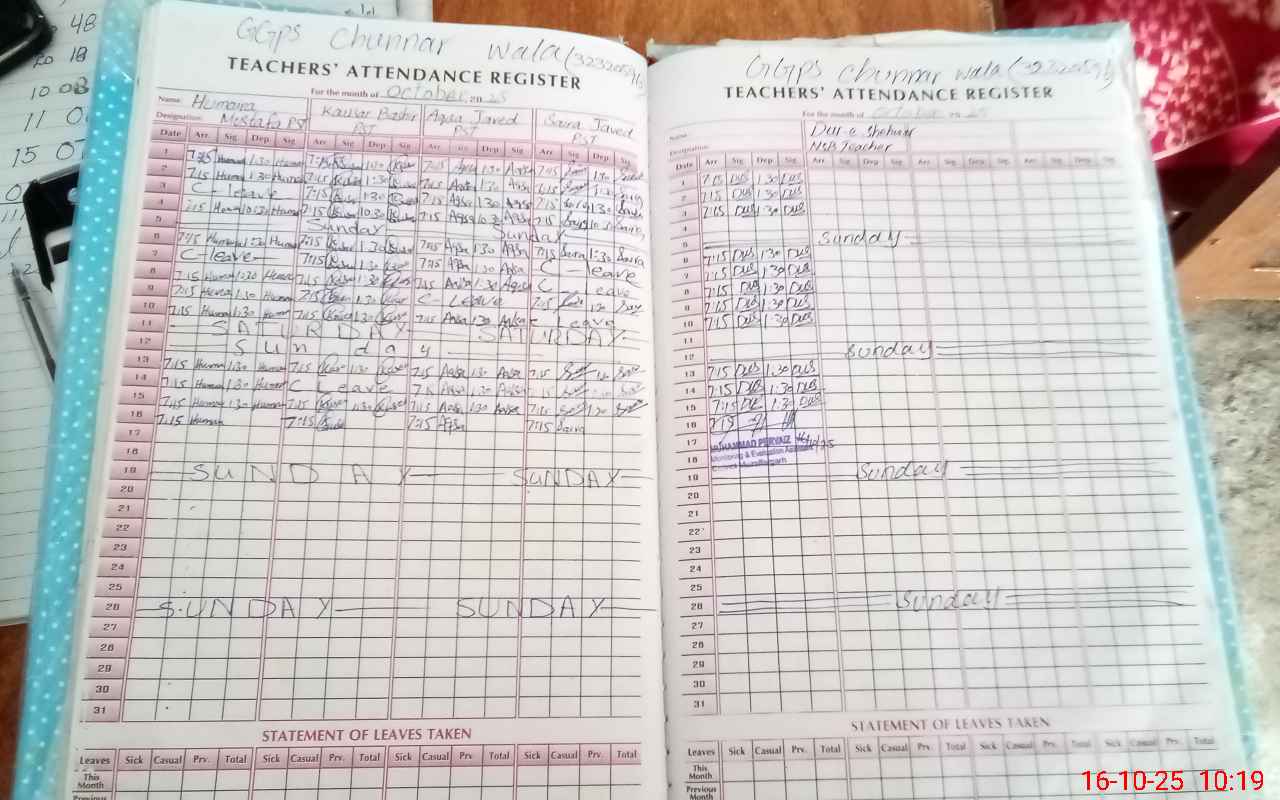 GGPS Chunnar wala (32320596)
TEACHERS' ATTENDANCE REGISTER
For the month of October 20 25
Name: Humaira Kausar Bashir Aqsa Javed Saira Javed
Designation: Mostafa PST PST PST PST
Date Arr. Sig Dep Sig Arr. Sig Dep Sig Arr. Sig Dep Sig Arr. Sig Dep Sig
1 7:15 1:30 7:15 1:30 7:15 Aqsa 1:30 Aqsa 7:15 1:30
2 7:15 Huma 1:30 Huma 7:15 1:30 7:15 Aqsa 1:30 Aqsa 7:15 1:30
3 C-leave 7:15 1:30 7:15 Aqsa 1:30 Aqsa 7:15 Saira 1:30 Saira
4 7:15 Huma 10:30 Huma 7:15 10:30 7:15 Aqsa 10:30 Aqsa 7:15 Saira 10:30 Saira
5 Sunday Sunday
6 7:15 Huma 1:30 Huma 7:15 1:30 7:15 Aqsa 1:30 Aqsa 7:15 Saira 1:30 Saira
7 C-leave 7:15 1:30 7:15 Aqsa 1:30 Aqsa C-leave
8 7:15 Huma 1:30 Huma 7:15 1:30 7:15 Aqsa 1:30 Aqsa C-leave
9 7:15 Huma 1:30 Huma 7:15 1:30 C-Leave 7:15 1:30
10 7:15 Huma 1:30 Huma 7:15 1:30 7:15 Aqsa 1:30 Aqsa C Leave
11 SATURDAY SATURDAY
12 Sunday
13 7:15 Huma 1:30 Huma 7:15 1:30 7:15 Aqsa 1:30 Aqsa 7:15 1:30
14 7:15 Huma 1:30 Huma C Leave 7:15 Aqsa 1:30 Aqsa 7:15
15 7:15 Huma 1:30 Huma 7:15 1:30 7:15 Aqsa 1:30 Aqsa 7:15 1:30
16 7:15 Human 7:15 7:15 Aqsa 7:15 Saira
17
18
19 SUNDAY SUNDAY
20
21
22
23
24
25
26 SUNDAY SUNDAY
27
28
29
30
31
STATEMENT OF LEAVES TAKEN
Leaves Sick Casual Prv. Total Sick Casual Prv. Total Sick Casual Prv. Total Sick Casual Prv. Total
This Month
Previous
GGPS Chunnar wala (32320596)
TEACHERS' ATTENDANCE REGISTER
For the month of October 20 25
Name: Dur-e Shehwar
Designation: NSB Teacher
Date Arr Sig Dep Sig Arr Sig Dep Sig Arr. Sig Dep. Sig Arr. Sig Dep. Sig
1 7:15 DUS 1:30 DUS
2 7:15 DUS 1:30 DUS
3 7:15 DUS 1:30 DUS
4
5 Sunday
6 7:15 DUS 1:30 DUS
7 7:15 DUS 1:30 DUS
8 7:15 DUS 1:30 DUS
9 7:15 DUS 1:30 DUS
10 7:15 DUS 1:30 DUS
11
12 Sunday
13 7:15 DUS 1:30 DUS
14 7:15 DUS 1:30 DUS
15 7:15 DUS 1:30 DUS
16
17 MUHAMMAD PERVAIZ
18 Monitoring & Evaluation Assistant
Muzaffargarh
19 Sunday
20
21
22
23
24
25
26 Sunday
27
28
29
30
31
STATEMENT OF LEAVES TAKEN
Leaves Sick Casual Prv. Total Sick Casual Prv. Total Sick Casual Prv. Total Sick Casual Prv. Total
This Month
Previous Month
16-10-25 10:19